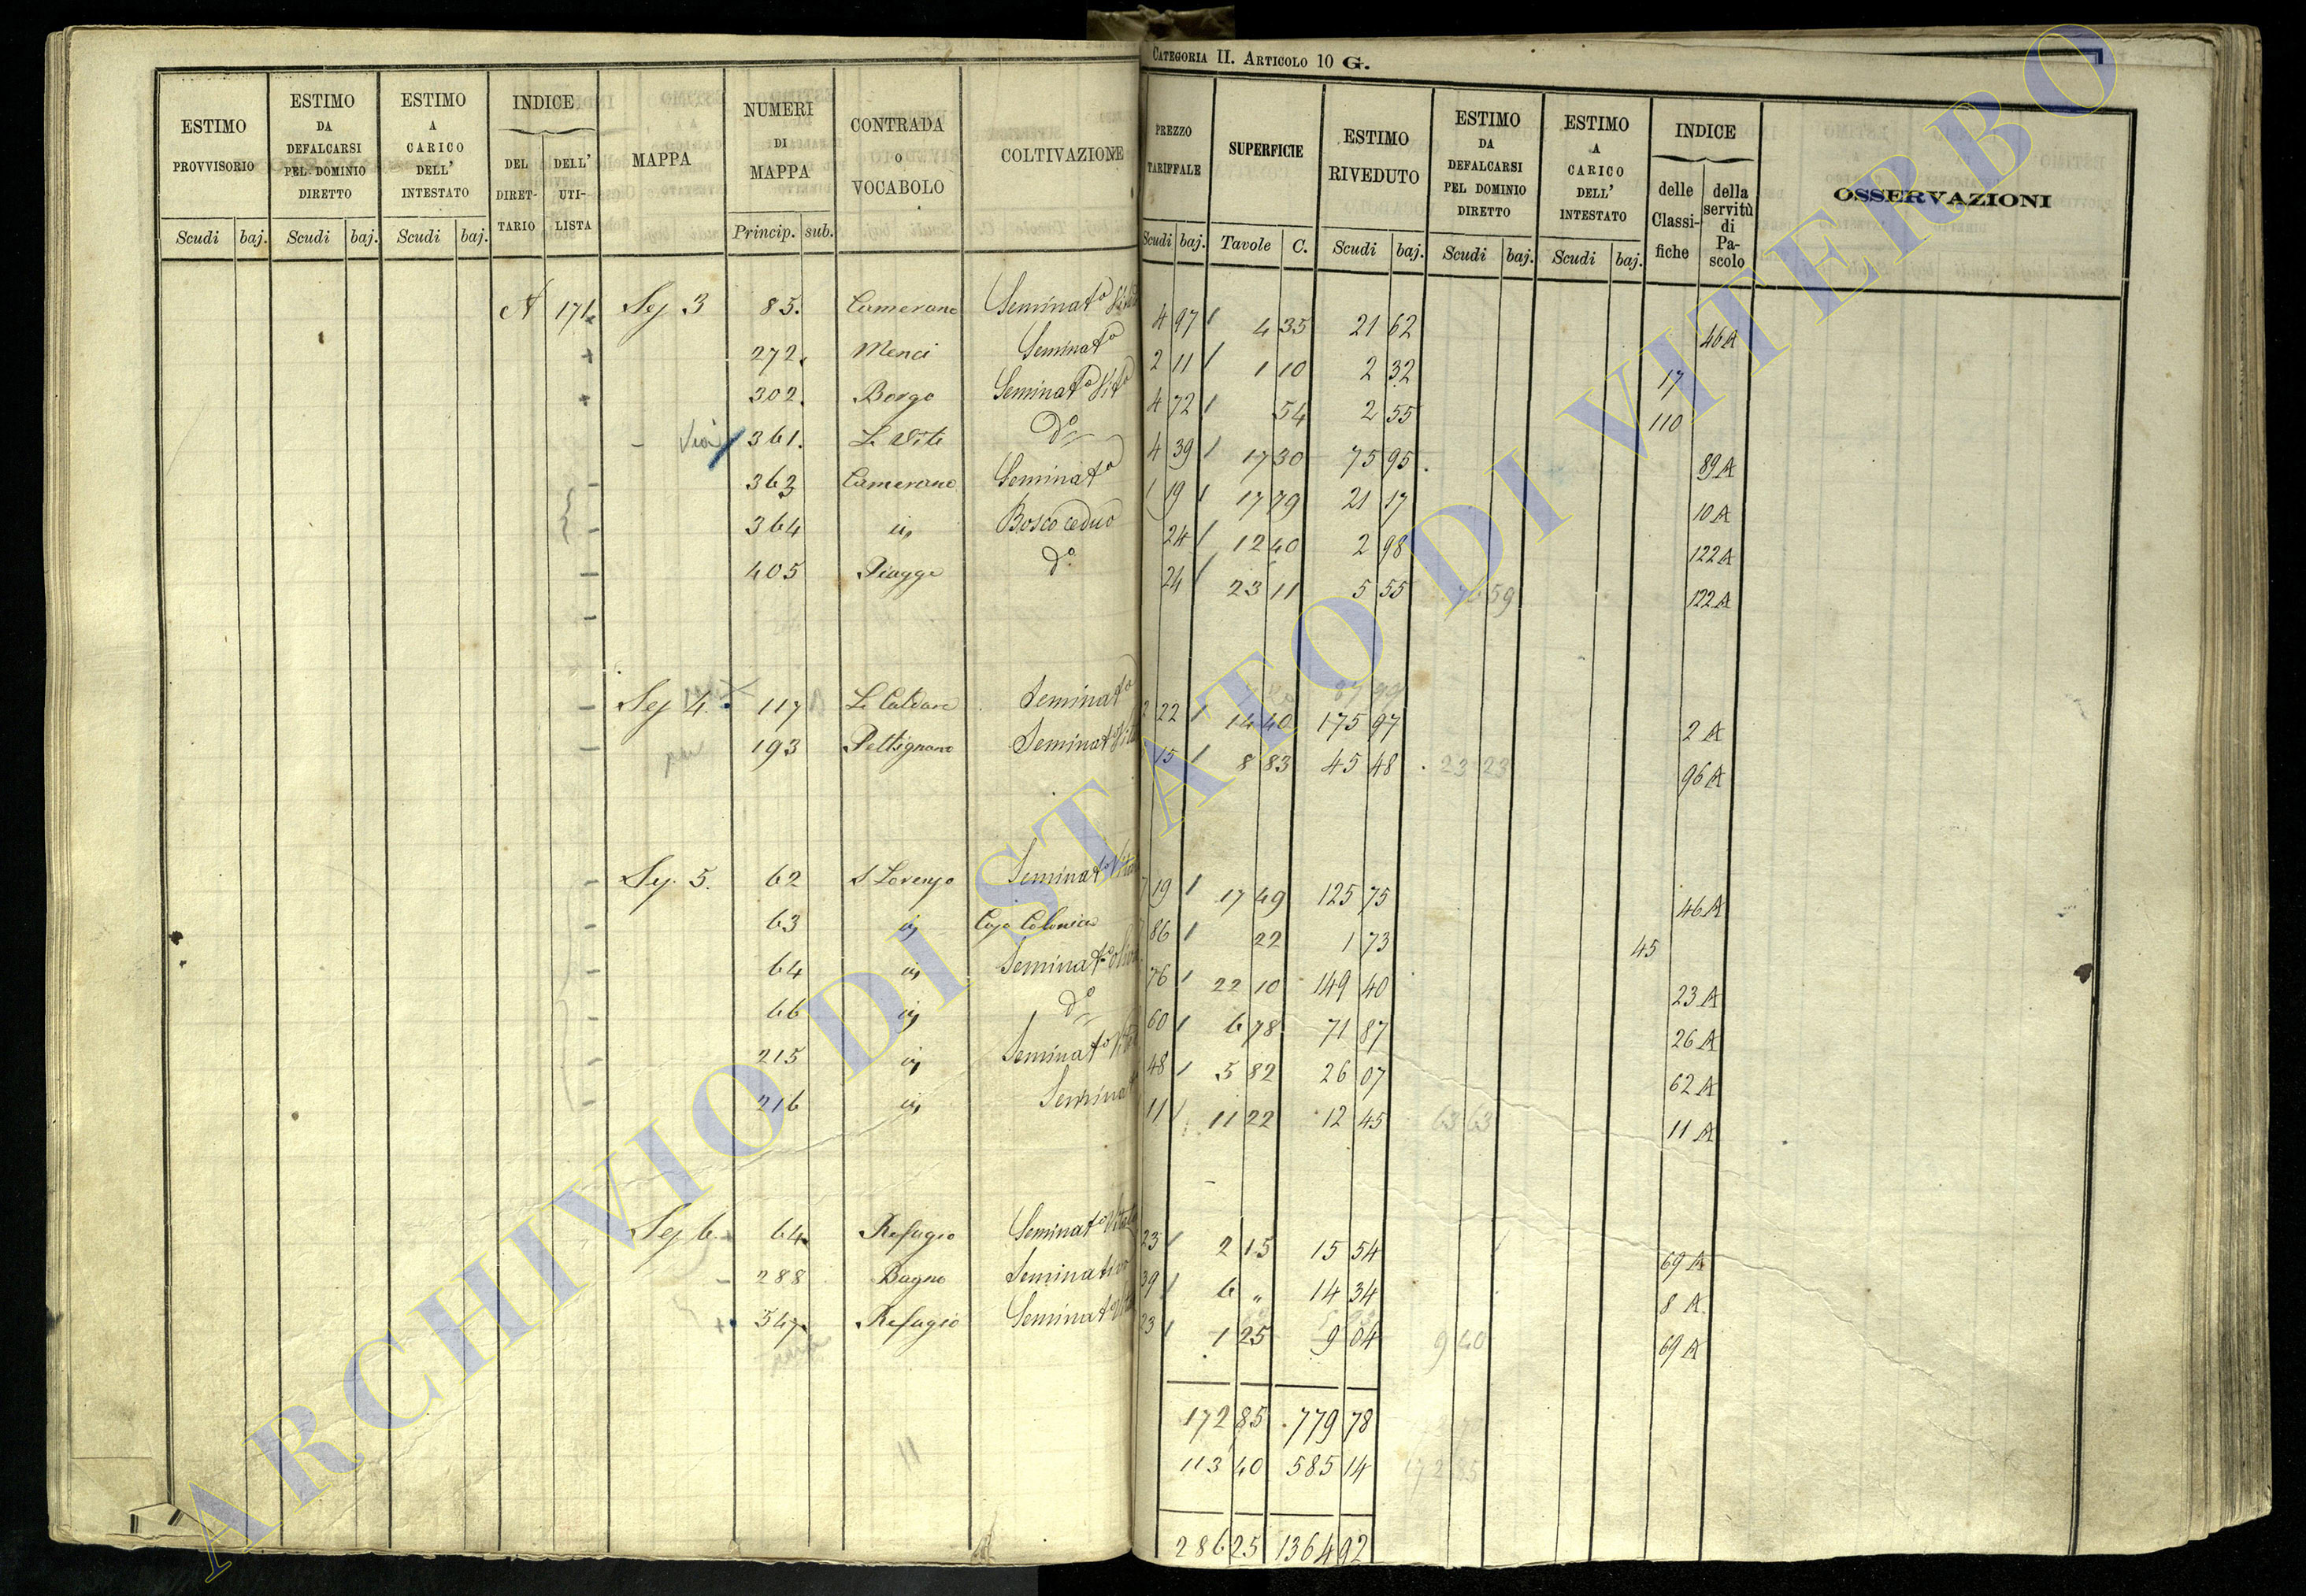 CATEGORIA II. ARTICOLO 10 G.
ESTIMO PROVVISORIO | ESTIMO DA DEFALCARSI PEL DOMINIO DIRETTO | ESTIMO A CARICO DELL' INTESTATO | INDICE DEL DIRETTARIO | DELL' UTILISTA | MAPPA | NUMERI DI MAPPA | CONTRADA O VOCABOLO | COLTIVAZIONE | PREZZO TARIFFALE | SUPERFICIE | ESTIMO RIVEDUTO | ESTIMO DA DEFALCARSI PEL DOMINIO DIRETTO | ESTIMO A CARICO DELL' INTESTATO | INDICE delle Classifiche | della servitù di Pascolo | OSSERVAZIONI
Scudi | baj. | Scudi | baj. | Scudi | baj. | Princip. | sub. | Scudi | baj. | Tavole | C. | Scudi | baj. | Scudi | baj. | Scudi | baj.
A 171 Sez 3 85. Camerano Seminato 4 97 4 35 21 62 46 A
272. Menci Seminato 2 11 1 10 2 32 17
302. Borgo Seminato Vito 4 72 54 2 55 110
361. Le Vite Do 4 39 17 30 75 95 89 A
363 Camerano Seminato 1 19 17 79 21 17 10 A
364 Bosco ceduo 24 12 40 2 98 122 A
405 Piagge Do 24 23 11 5 55 122 A
Sez 4. 117 Seminato 22 14 40 175 97 2 A
193 Pettignano 15 8 83 45 48 23 23 96 A
Sez. 5. 62 S Lorenzo 19 17 49 125 75 46 A
63 Casa Colonica 86 22 1 73 45
64 76 22 10 149 40 23 A
66 Do 60 6 78 71 87 26 A
215 48 5 82 26 07 62 A
216 11 11 22 12 45 63 63 11 A
Sez 6. 64 Refugio 23 2 15 15 54 69 A
288 Bagno Seminativo 39 6 „ 14 34 8 A
347 Refugio 23 1 25 9 04 9 40 69 A
172 85 779 78
113 40 585 14 172 85
286 25 1364 92
ARCHIVIO DI STATO DI VITERBO